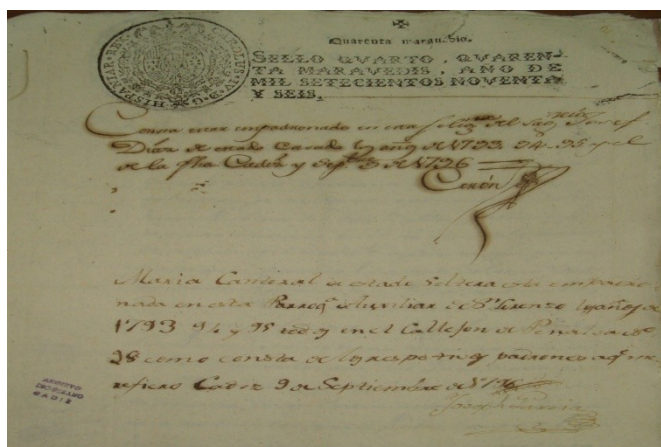 CAROLUS IV D G HISPANIAR REX
Quarenta maravedis.
SELLO QVARTO, QVAREN-
TA MARAVEDIS, AÑO DE
MIL SETECIENTOS NOVENTA
Y SEIS.
Consta estar empadronado en esta
Diaz de estado Casado los años de 1793 94 95 y el
de la fha Cadiz y 3 de 1796
Cerón
Maria de estado Soltera esta empadro
nada en esta Parroq.ª Auxiliar de Sn Lorenzo los años de
1793 94 y 95 en el Callejon de
28 como consta de los respectivos padrones a q.e me
refiero Cadiz 9 de Septiembre de 1796
ARCHIVO
DIOCESANO
CADIZ